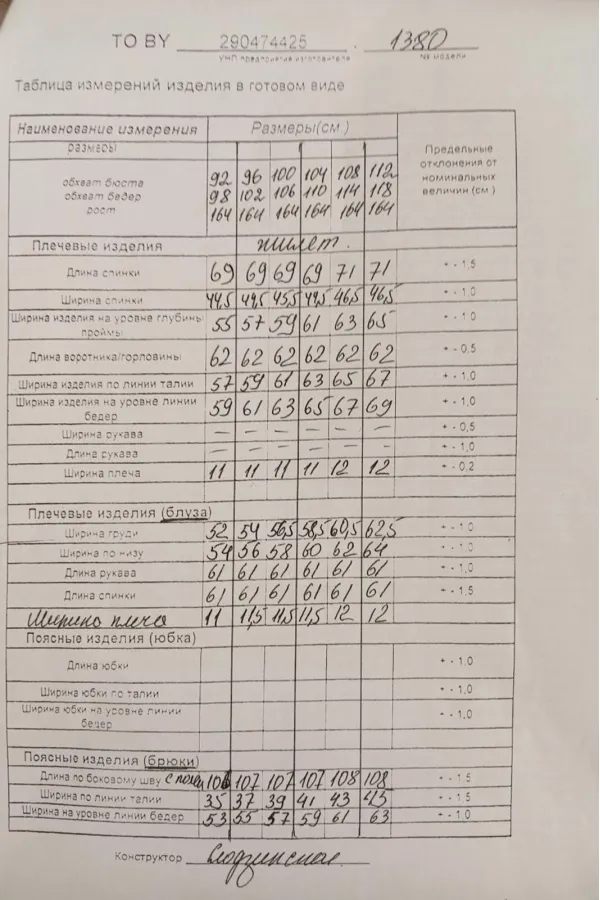 TO BY 290474425 . 1380
УНП предприятия изготовителя № модели
Таблица измерений изделия в готовом виде
Наименование измерения Размеры(см ) Предельные отклонения от номинальных величин (см )
размеры
обхват бюста 92 96 100 104 108 112
обхват бедер 98 102 106 110 114 118
рост 164 164 164 164 164 164
Плечевые изделия жилет.
Длина спинки 69 69 69 69 71 71 + - 1,5
Ширина спинки 44,5 44,5 45,5 44,5 46,5 46,5 + - 1,0
Ширина изделия на уровне глубины проймы 55 57 59 61 63 65 + - 1,0
Длина воротника/горловины 62 62 62 62 62 62 + - 0,5
Ширина изделия по линии талии 57 59 61 63 65 67 + - 1,0
Ширина изделия на уровне линии бедер 59 61 63 65 67 69 + - 1,0
Ширина рукава – – – – – – + - 0,5
Длина рукава – – – – – – + - 1,0
Ширина плеча 11 11 11 11 12 12 + - 0,2
Плечевые изделия (блуза)
Ширина груди 52 54 56,5 58,5 60,5 62,5 + - 1,0
Ширина по низу 54 56 58 60 62 64 + - 1,0
Длина рукава 61 61 61 61 61 61 + - 1,0
Длина спинки 61 61 61 61 61 61 + - 1,5
Ширина плеча 11 11,5 11,5 11,5 12 12
Поясные изделия (юбка)
Длина юбки + - 1,0
Ширина юбки по талии + - 1,0
Ширина юбки на уровне линии бедер + - 1,0
Поясные изделия (брюки)
Длина по боковому шву с 106 107 107 107 108 108 + - 1,5
Ширина по линии талии 35 37 39 41 43 45 + - 1,5
Ширина на уровне линии бедер 53 55 57 59 61 63 + - 1,0
Конструктор